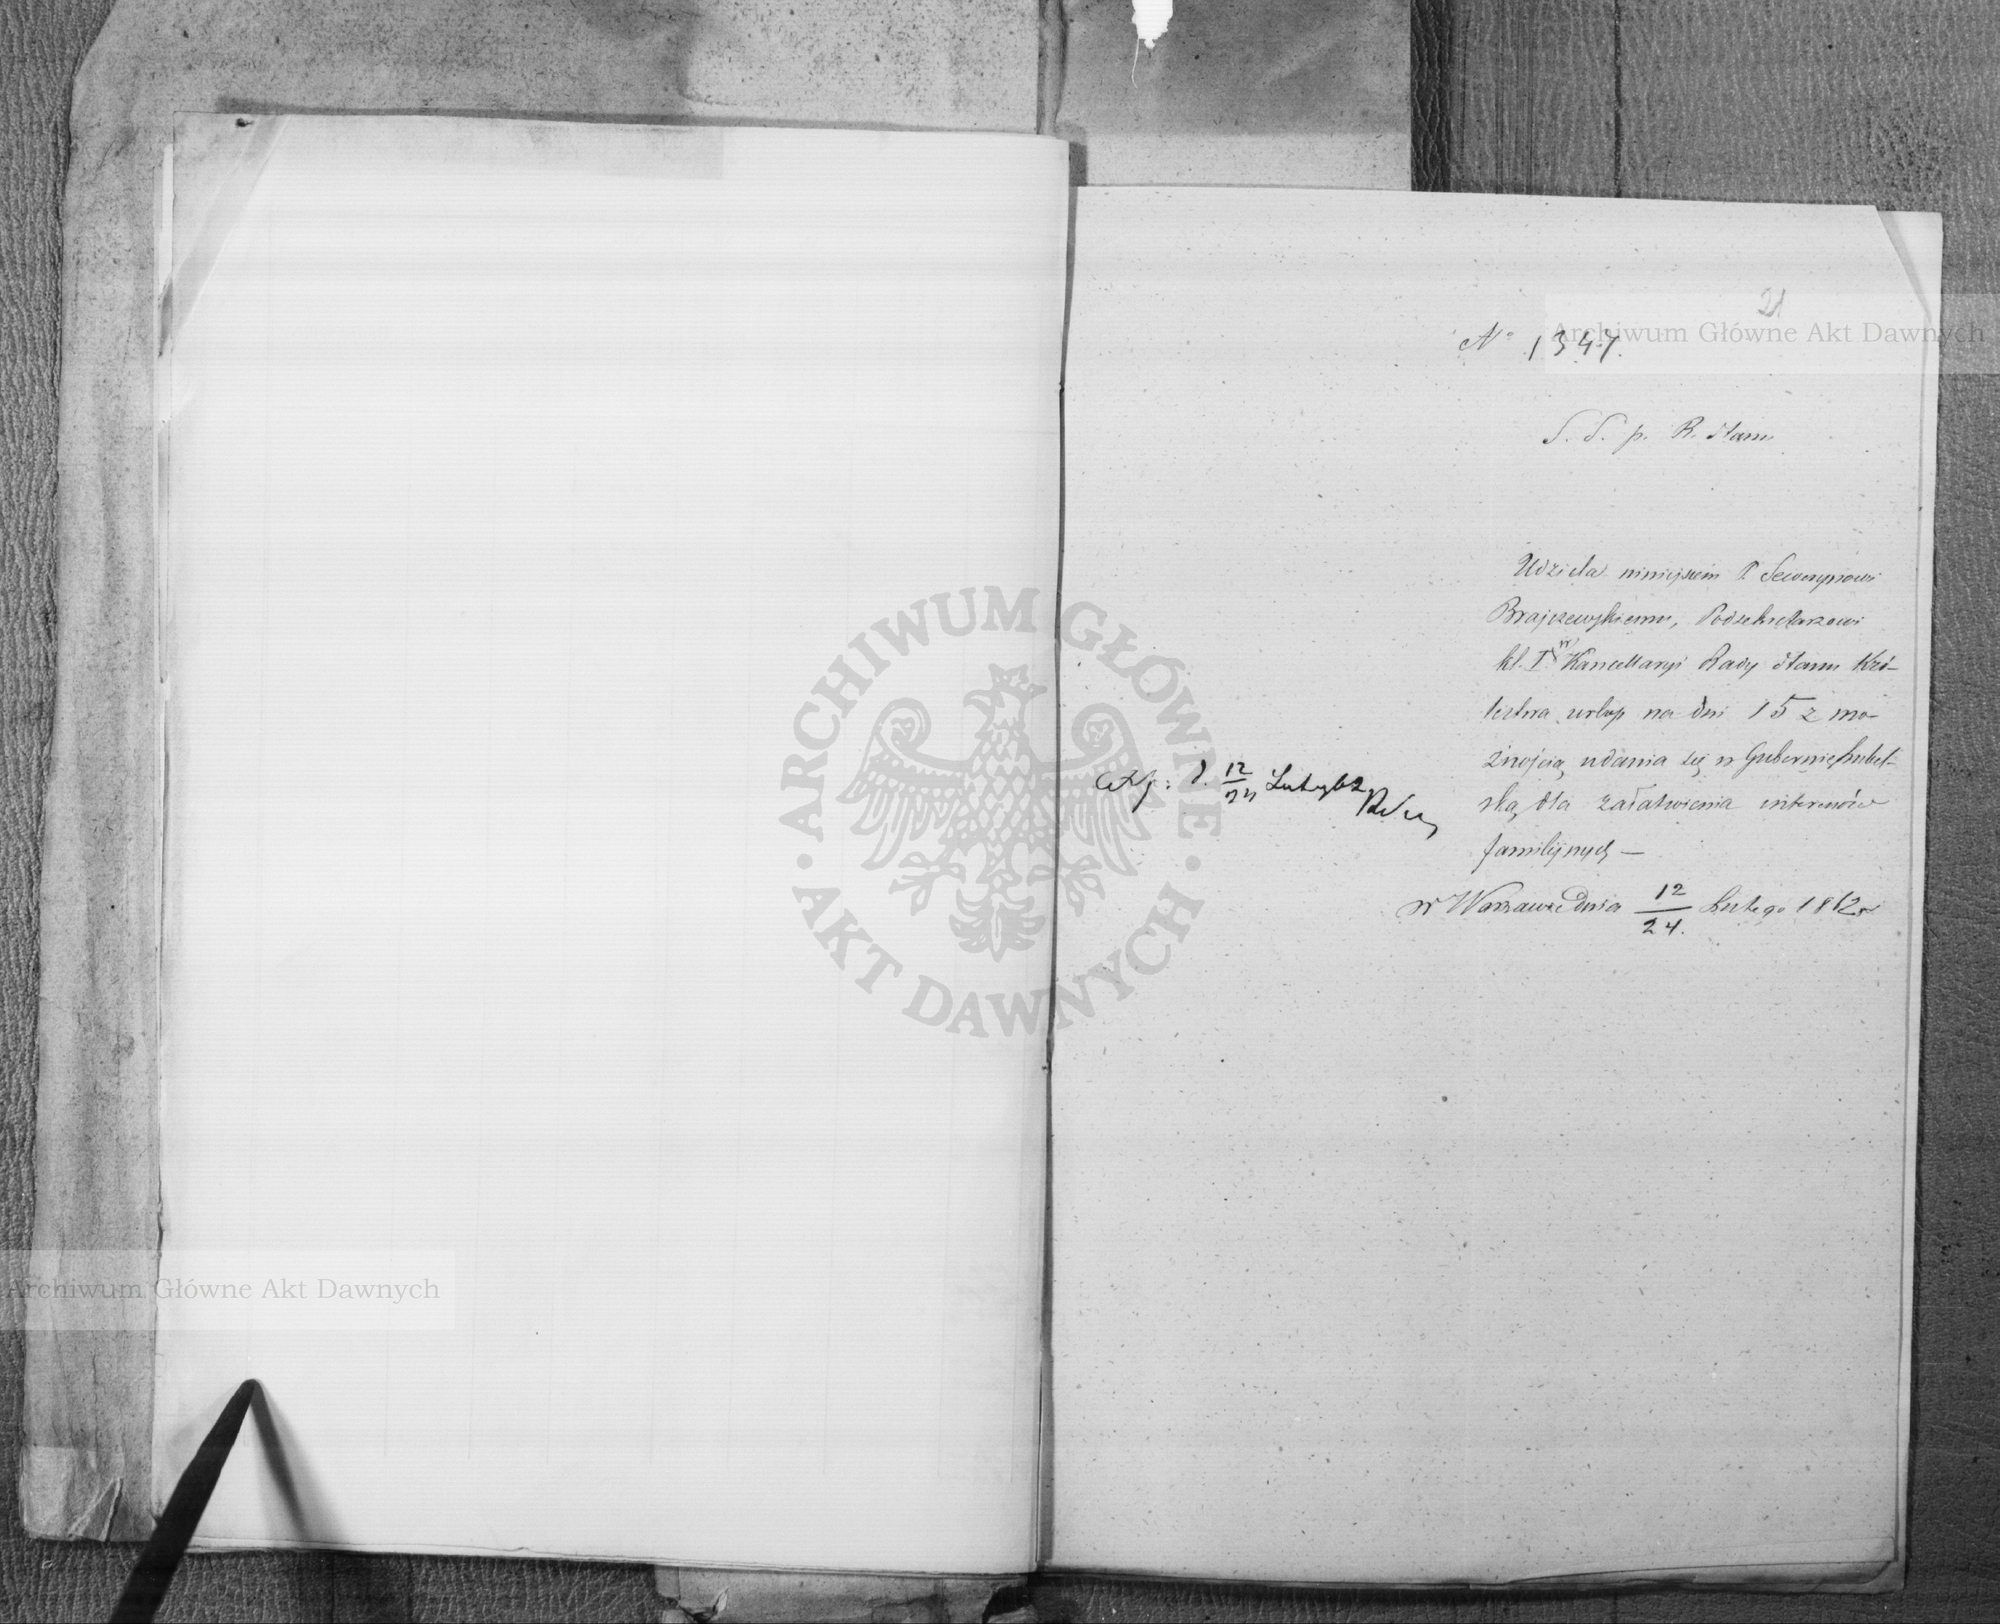 21
Nº 1347.
S. S. p. R. Stanu
Udziela niniejszem P. Sewerynowi
Brajczewskiemu, Podsekretarzowi
kl. I. w Kancellaryi Rady Stanu Kró-
lestwa urlop na dni 15 z mo-
żnością udania się w Gubernię Lubel-
ską dla załatwienia interessów
familijnych —
w Warszawie dnia 12/24. Lutego 1862 r.
d. 12/24 Lutego 62
Archiwum Główne Akt Dawnych
ARCHIWUM GŁÓWNE · AKT DAWNYCH ·
Archiwum Główne Akt Dawnych